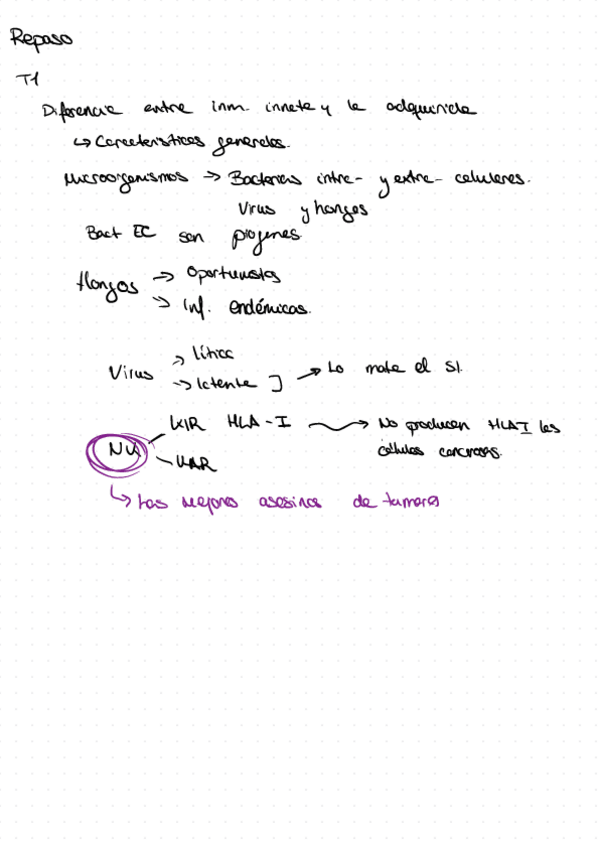 Repaso
T1
Diferencia entre inm. innata y la adquirida
↳ Características generales.
Microorganismos → Bacterias intra- y extra- celulares.
Virus y hongos
Bact EC son piógenas.
Hongos → Oportunistas
→ Inf. endémicas.
Virus → lítica
→ latente ] → Lo mata el SI.
NK KIR HLA-I → No producen HLA I las
células cancerosas.
KAR
↳ Las mejores asesinas de tumores